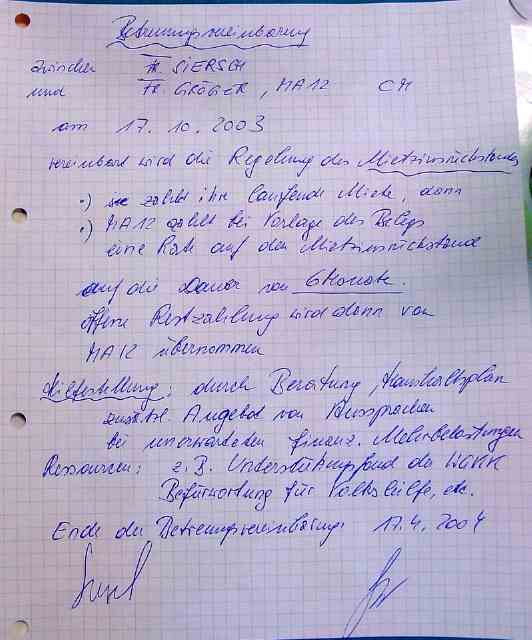 Betreuungsvereinbarung
zwischen Fr. SIERSCH
und Fr. GRÖGER, MA12 CM
am 17.10.2003
vereinbart wird die Regelung des Mietzinsrückstandes
·) sie zahlt ihre laufende Miete, dann
·) MA12 zahlt bei Vorlage des Belegs
eine Rate auf den Mietzinsrückstand
auf die Dauer von 6 Monate.
offene Restzahlung wird dann von
MA12 übernommen
Hilfestellung: durch Beratung, Haushaltsplan
zusätzl. Angebot von Aussprachen
bei unerwarteten finanz. Mehrbelastungen
Ressourcen: z.B. Unterstützungsfond der WGKK
Befürwortung für Volkshilfe, etc.
Ende der Betreuungsvereinbarung: 17.4.2004